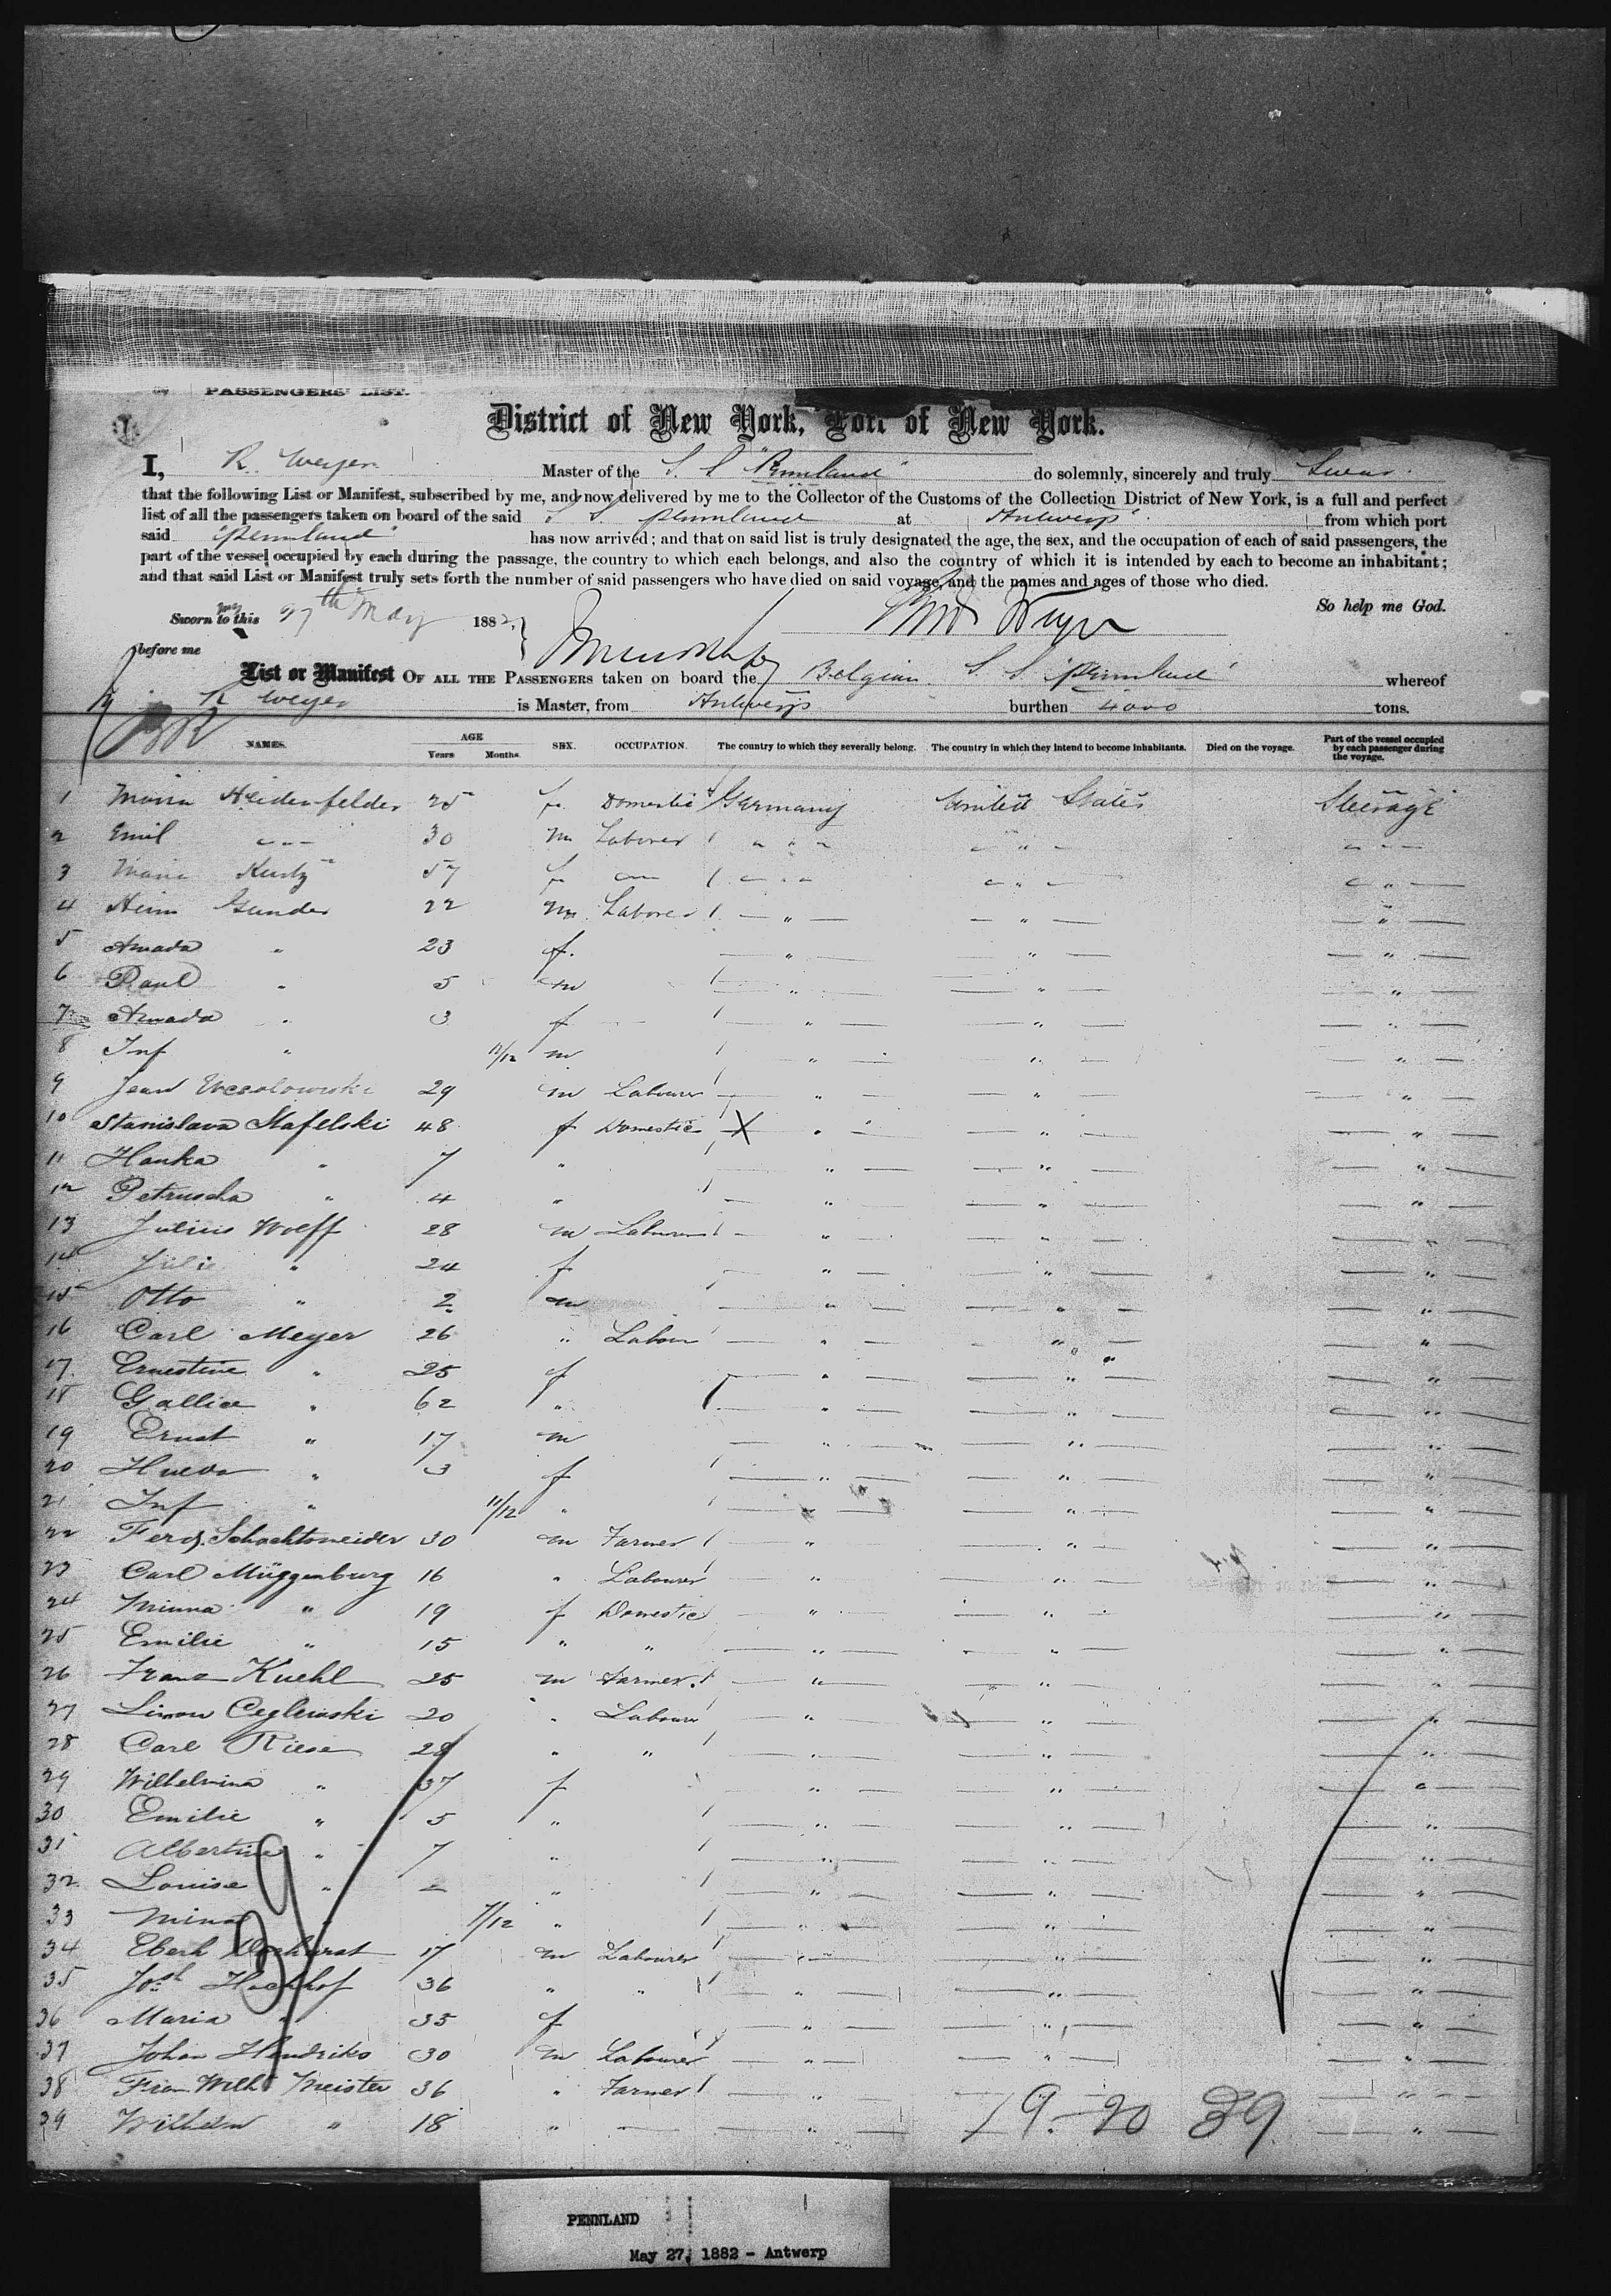 PASSENGERS' LIST.
District of New York, Port of New York.
I, R. Weyer Master of the S. S. "Pennland" do solemnly, sincerely and truly Swear
that the following List or Manifest, subscribed by me, and now delivered by me to the Collector of the Customs of the Collection District of New York, is a full and perfect
list of all the passengers taken on board of the said S. S. Pennland at Antwerp from which port
said "Pennland" has now arrived; and that on said list is truly designated the age, the sex, and the occupation of each of said passengers, the
part of the vessel occupied by each during the passage, the country to which each belongs, and also the country of which it is intended by each to become an inhabitant;
and that said List or Manifest truly sets forth the number of said passengers who have died on said voyage, and the names and ages of those who died.
So help me God.
Sworn to this 27th May 1882,
before me
List or Manifest OF ALL THE PASSENGERS taken on board the Belgian S. S. "Pennland" whereof
R Weyer is Master, from Antwerp burthen 4000 tons.
NAMES. AGE Years Months. SEX. OCCUPATION. The country to which they severally belong. The country in which they intend to become inhabitants. Died on the voyage. Part of the vessel occupied by each passenger during the voyage.
1 Maria Heidenfelder 25 f. Domestic Germany United States Steerage
2 Emil " 30 m Laborer " " "
3 Maria Kurtz 57 f " " " "
4 Heinr Gunder 22 m Laborer " " "
5 Amada " 23 f. " " "
6 Paul " 5 m " " "
7 Amada " 3 f " " "
8 Inf " 11/12 m " " "
9 Jean Wesolowski 29 m Labourer " " "
10 Stanislava Stafelski 48 f Domestic X " " "
11 Hanka " 7 " " " "
12 Petruscha " 4 " " " "
13 Julius Wolff 28 m Labourer " " "
14 Julie " 24 f " " "
15 Otto " 2 m " " "
16 Carl Meyer 26 " Labour " " "
17 Ernestine " 25 f " " "
18 Gallice " 62 " " " "
19 Ernst " 17 m " " "
20 " 3 f " " "
21 Inf " 11/12 " " " "
22 Ferd. Schachtsneider 30 m Farmer " " "
23 Carl Müggenburg 16 " Labourer " " "
24 Minna " 19 f Domestic " " "
25 Emilie " 15 " " " " "
26 Franz Kuehl 25 m Farmer. " " "
27 Simon Ceglewski 20 " Labour " " "
28 Carl Riese 28 " " " " "
29 Wilhelmina " 37 f " " "
30 Emilie " 5 " " " "
31 Albertine " 7 " " " "
32 Louise " – " " " "
33 Mina " 7/12 " " " "
34 Eberh 17 m Labourer " " "
35 Josh Hockhof 36 " " " " "
36 Maria " 35 f " " "
37 Johan Hendriks 30 m Labourer " " "
38 Fran Wilh Meister 36 " Farmer " " "
39 Wilhelm " 18 " — " " "
39
19.-20 39
PENNLAND
May 27, 1882 - Antwerp